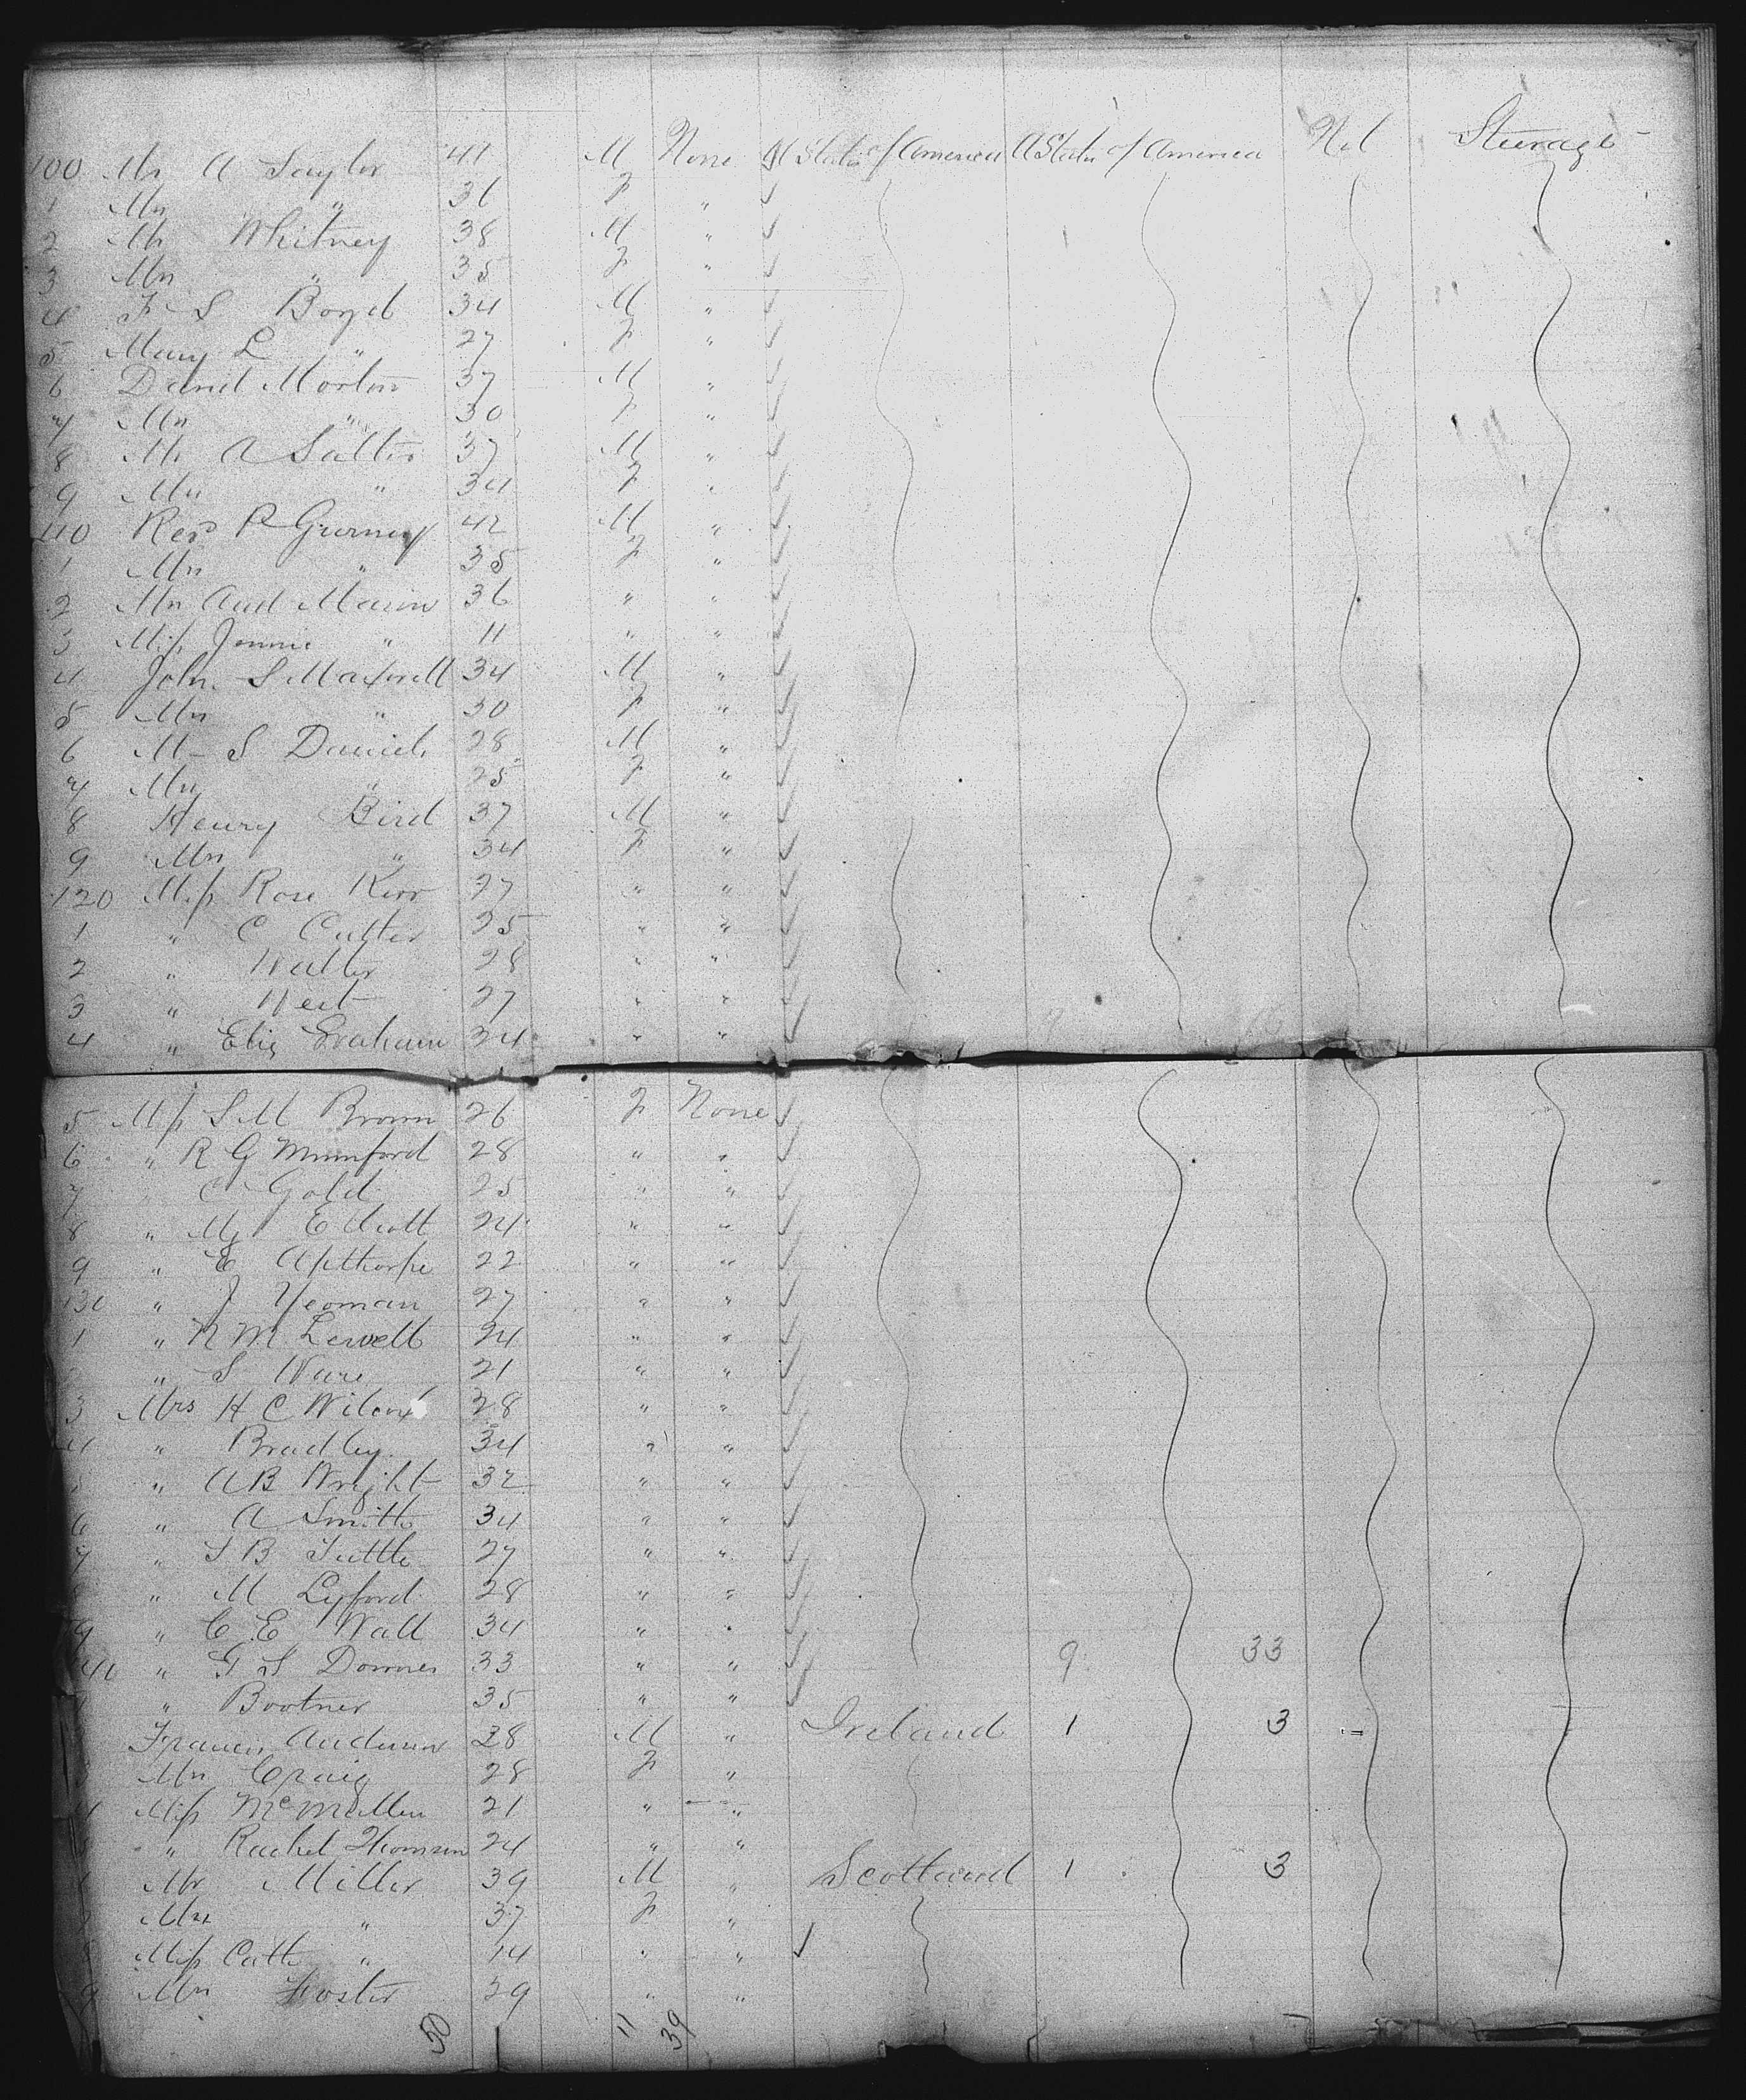 100 Mr A Saylor 41 M None U States of America U States of America Nil Steerage
1 Mrs " 36 F "
2 Mr Whitney 38 M "
3 Mrs " 35 F "
4 F S Boyd 34 M "
5 Mary L " 27 F "
6 Daniel Morton 37 M "
7 Mrs " 30 F "
8 Mr A Salter 37 M "
9 Mrs " 34 F "
110 Revd P Gurney 42 M "
1 Mrs " 35 F "
2 Mrs And Mason 36 " "
3 Miss Jennie " 11 " "
4 John S Maxwell 34 M "
5 Mrs " 30 F "
6 M S Daniels 28 M "
7 Mrs " 25 F "
8 Henry Bird 37 M "
9 Mrs " 34 F "
120 Miss Rose Kerr 27 " "
1 " C Cutter 25 " "
2 " Walter 28 " "
3 " West 27 " "
4 " Eliz Graham 24 " "
5 Miss S M Brown 26 F None
6 " R G Mumford 28 " "
7 " C Gold 25 " "
8 " My E Scott 24 " "
9 " E Apthorpe 22 " "
130 " J Yeoman 27 " "
1 " N M Lewett 24 " "
" S Ware 21 " "
3 Mrs H C Wilcox 28 " "
4 " Bradley 34 " "
" A B Wright 32 " "
6 " A Smith 34 " "
7 " S B Tuttle 27 " "
" M Lyford 28 " "
9 " C E Wall 34 " "
40 " G S Downes 33 " " 9 33
" Bootner 35 " "
Francis Anderson 28 M " Ireland 1 3
Mrs Craig 28 F "
4 Miss McMullen 21 " "
" Rachel Thomson 24 " "
Mr Miller 39 M " Scotland 1 3
Mrs " 37 F "
Miss Cath " 14 " "
9 Mrs Foster 29 " "
50 11 39